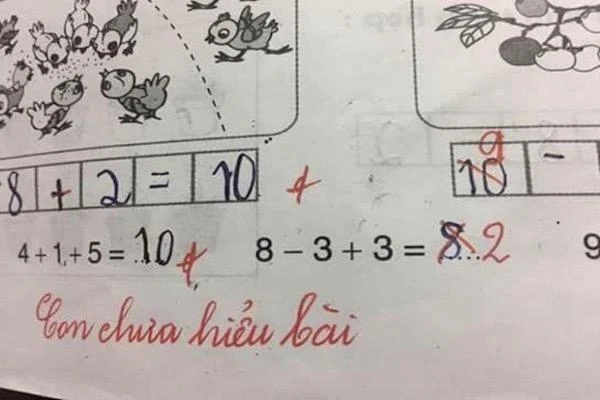 9
8 + 2 = 10 10 -
4 + 1 + 5 = 10 8 – 3 + 3 = 8 2 9
Con chưa hiểu bài